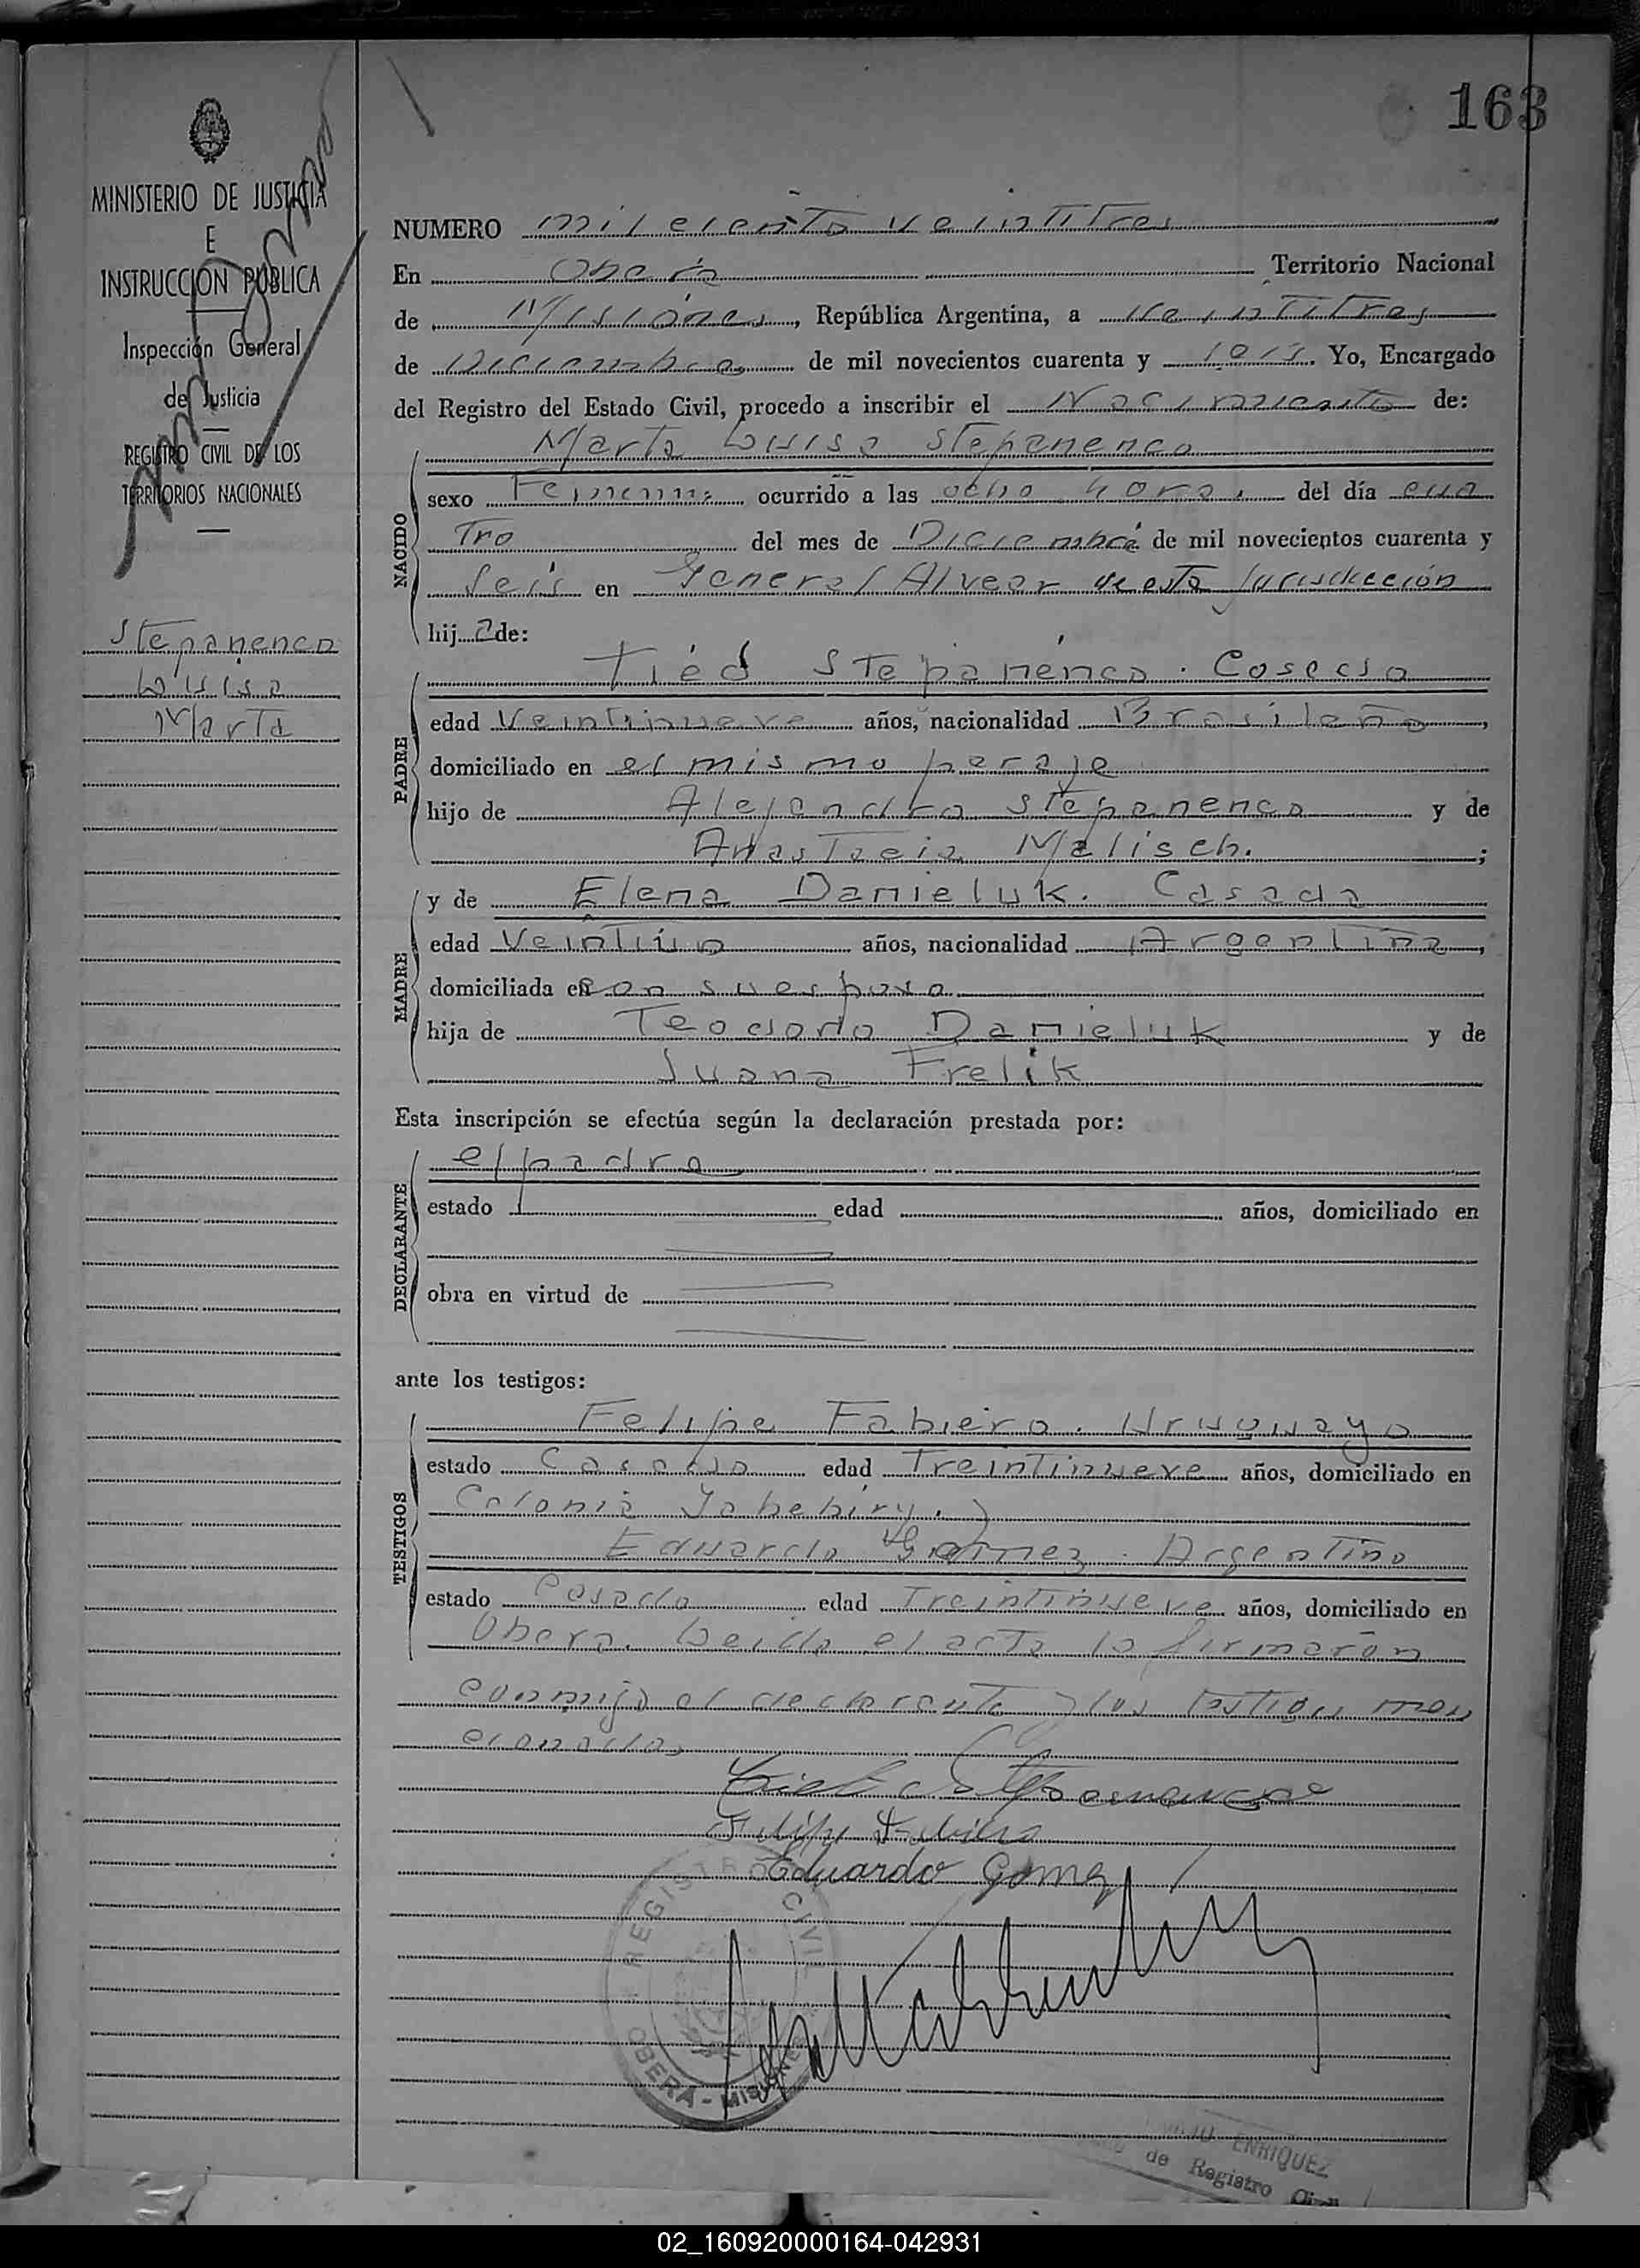 163
MINISTERIO DE JUSTICIA
E
INSTRUCCIÓN PÚBLICA
Inspección General
de Justicia
REGISTRO CIVIL DE LOS
TERRITORIOS NACIONALES
Stepanenco
Luisa
Marta
NUMERO mil ciento veintitres
En Oberá Territorio Nacional
de Misiones, República Argentina, a veintitres
de Diciembre de mil novecientos cuarenta y seis. Yo, Encargado
del Registro del Estado Civil, procedo a inscribir el Nacimiento de:
Marta Luisa Stepanenco
NACIDO
sexo Femenino ocurrido a las ocho horas del día cua
tro del mes de Diciembre de mil novecientos cuarenta y
seis en General Alvear de esta jurisdicción
hija de:
Stepanenco. Casado
PADRE
edad Veintinueve años, nacionalidad Brasileño,
domiciliado en el mismo paraje
hijo de Alejandro Stepanenco y de
Anastacia Malisch.;
y de Elena Danieluk. Casada
MADRE
edad Veintiún años, nacionalidad Argentina,
domiciliada en con su esposo
hija de Teodoro Danieluk y de
Juana Frelik
Esta inscripción se efectúa según la declaración prestada por:
el padre
DECLARANTE
estado edad años, domiciliado en
obra en virtud de
ante los testigos:
Felipe Fabiero. Uruguayo
TESTIGOS
estado Casado edad Treintinueve años, domiciliado en
Colonia Yabebiry. y
Eduardo Gomez. Argentino
estado Casado edad Treintinueve años, domiciliado en
Oberá. Leida el acta la firmarón
conmigo el declarante y los testigos men
cionados
Stepanenco
Eduardo Gomez
REGISTRO CIVIL
OBERA - MISIONES
ENRIQUEZ
de Registro Civil
02_160920000164-042931